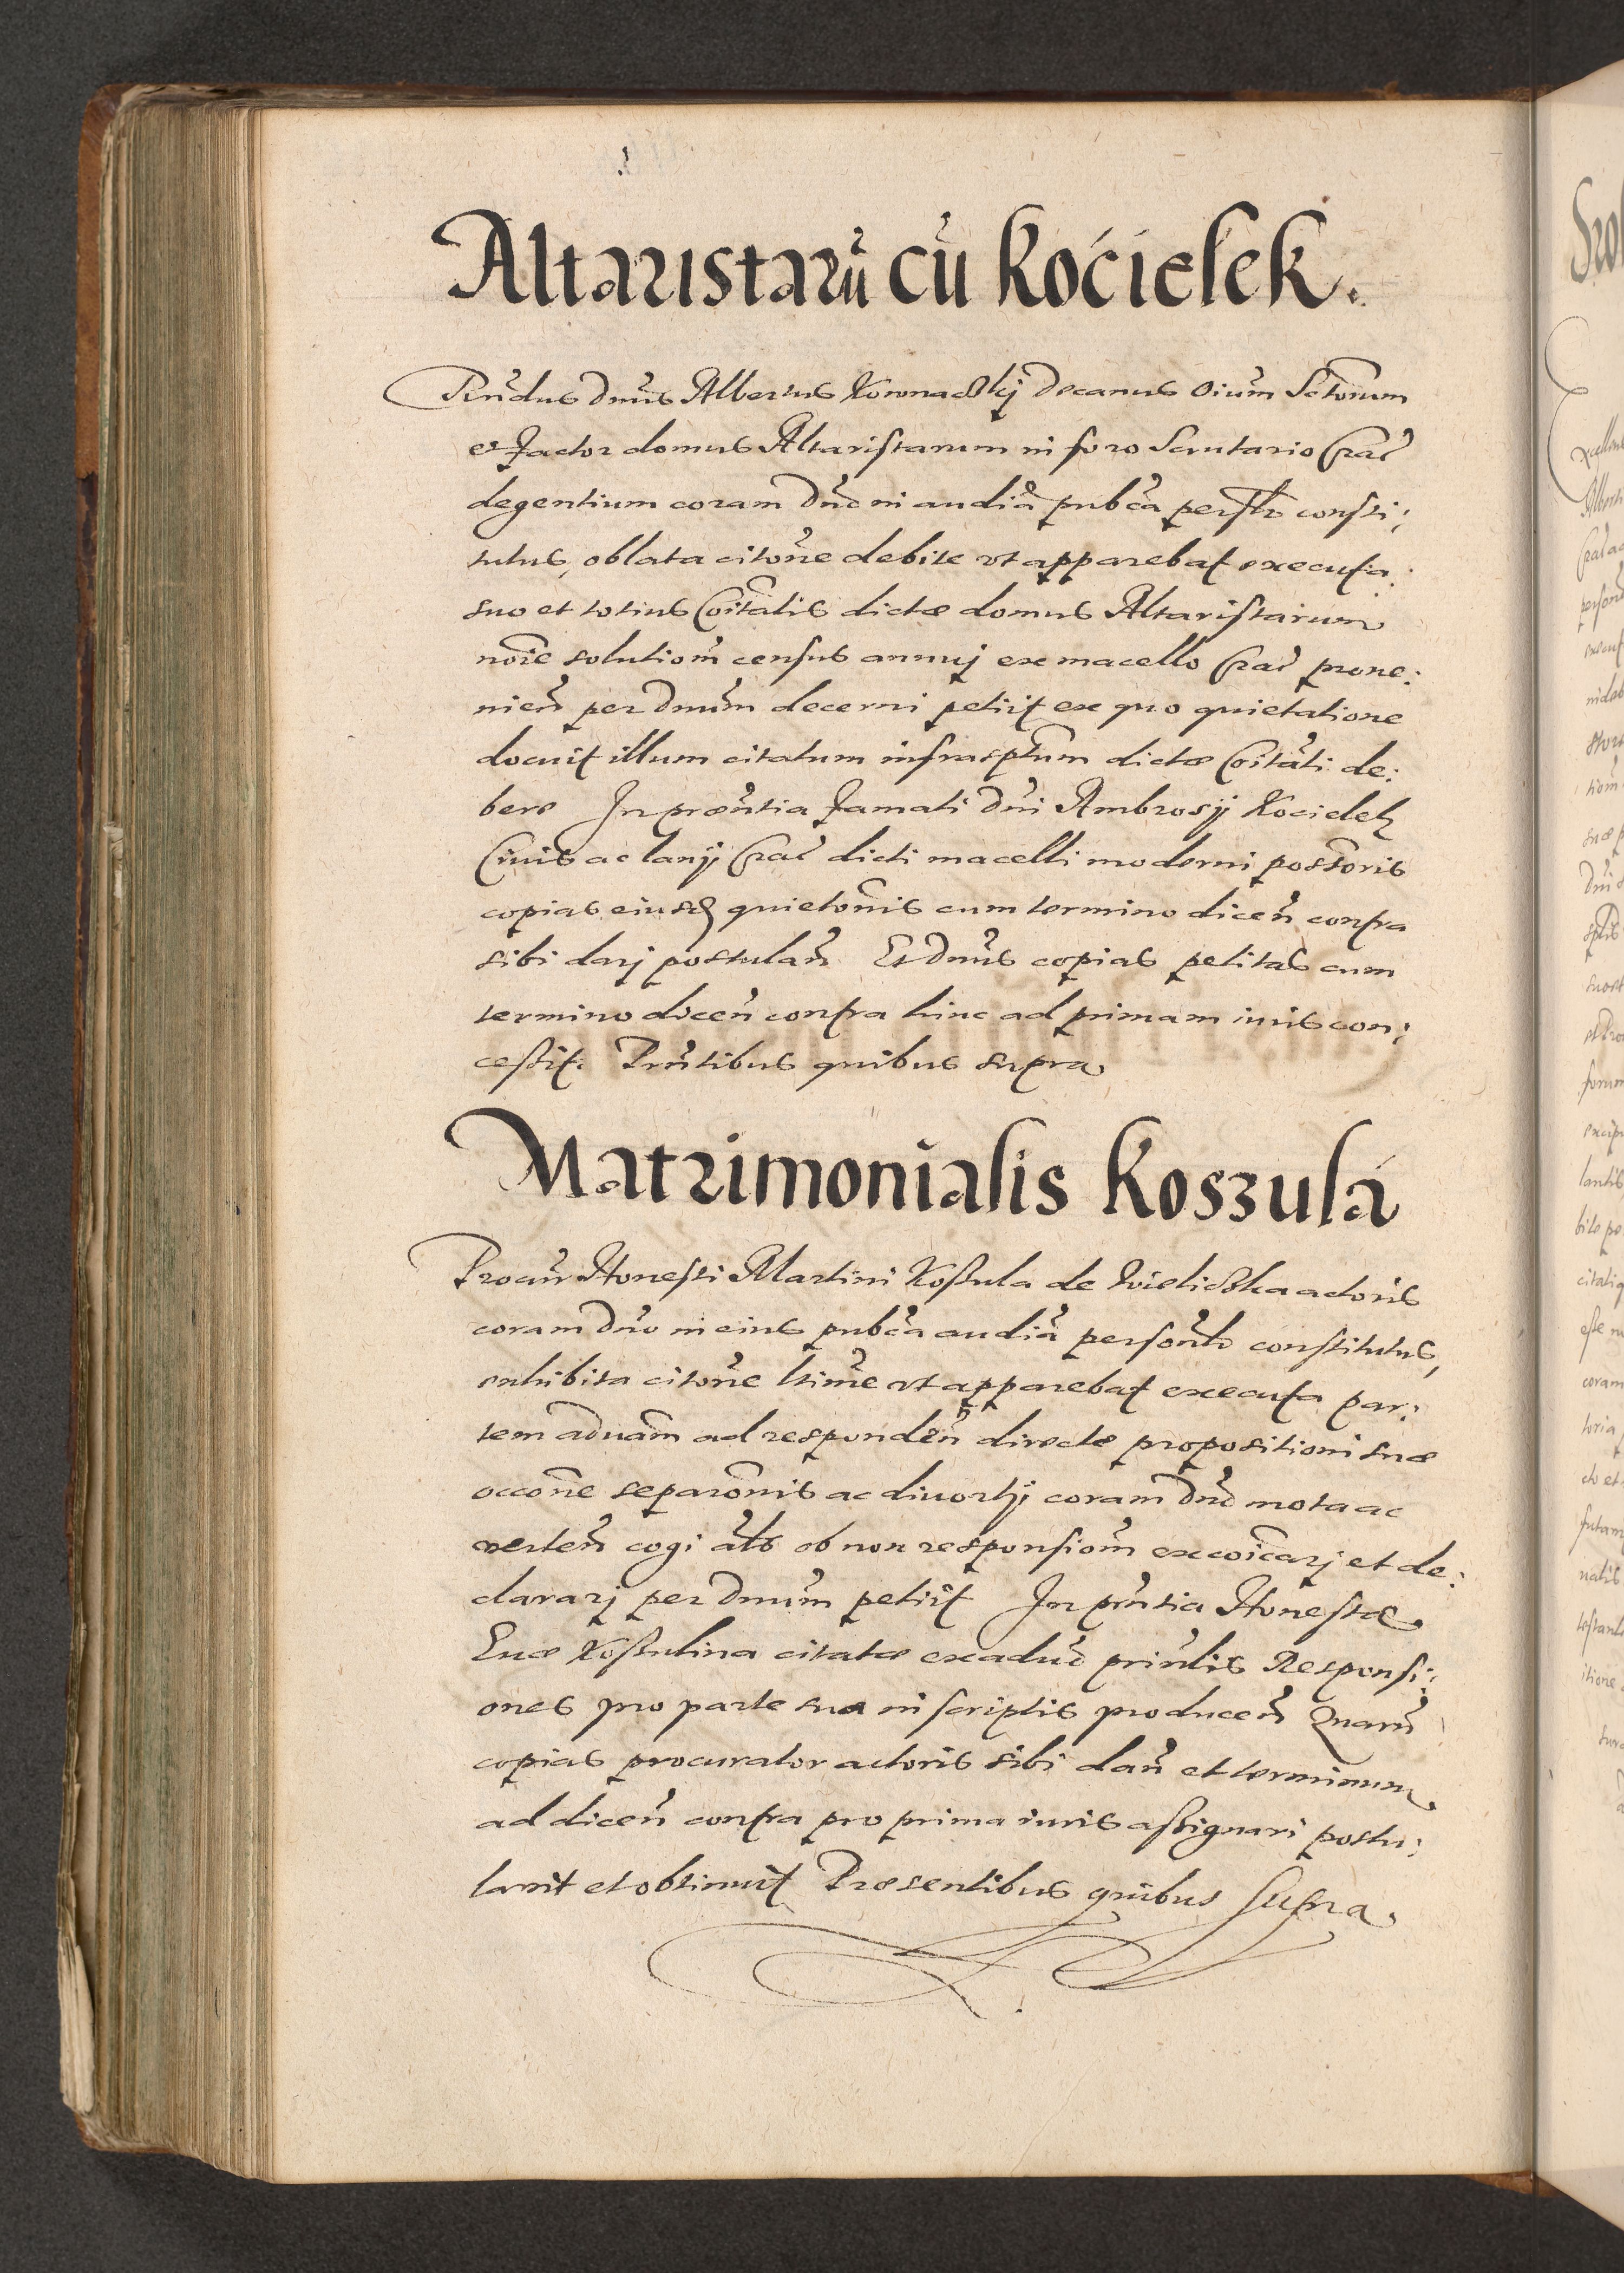 Altaristarũ cũ Kocielek.
Rñdus Dnũs Albertus Koronacskij Decanus Oiũm Sctorum
et Factor domus Altaristarum in foro Scutario Crac̃
degentium coram Dño in audiã pubc̃a persltr consti:
tutus, oblata citoñe debite vt apparebat executa
suo et totius Coitãtis dictæ domus Altaristarum
noĩe solutiom̃ census annuj ex macello Crac̃ prove:
nieñ per Dnum̃ decerni petiit ex quo quietatione
docuit illum citatum infrasptum̃ dictæ Coitãti de:
bere In præñtia Famati Dñi Ambrosij Kocielek
Civis ac lanij Crac̃ dicti macelli moderni possoris̃
copias eiusd quietoñis cum termino diceñ contra
sibi darj postulañ Et Dnũs copias petitas cum
termino diceñ contra hinc ad primam iuris con:
cessit. Prñtibus quibus supra
Matrimonialis Koszula
Procuñ Honesti Martini Kossula de Wieliczka actoris
coram Dño in eius pubc̃a audiã personl̃r constitutus,
exhibita citoñe ltime vt apparebat executa par:
tem aduam̃ ad respondeñ directe propositioni suæ
occoñe separoñis ac divortij coram Dño mota ac
verteñ cogi al̃s ob non responsiom̃ excoic̃arj et de:
clararj per Dnum̃ petiit In prñtia Honestæ
Euæ Kossulina citatæ ex aduo prinlis Responsi:
ones pro parte sua in scriptis produceñ Quarũ
copias procurator actoris sibi dañ et terminum
ad diceñ contra pro prima iuris assignari postu:
lavit et obtinuit Præsentibus quibus supra.